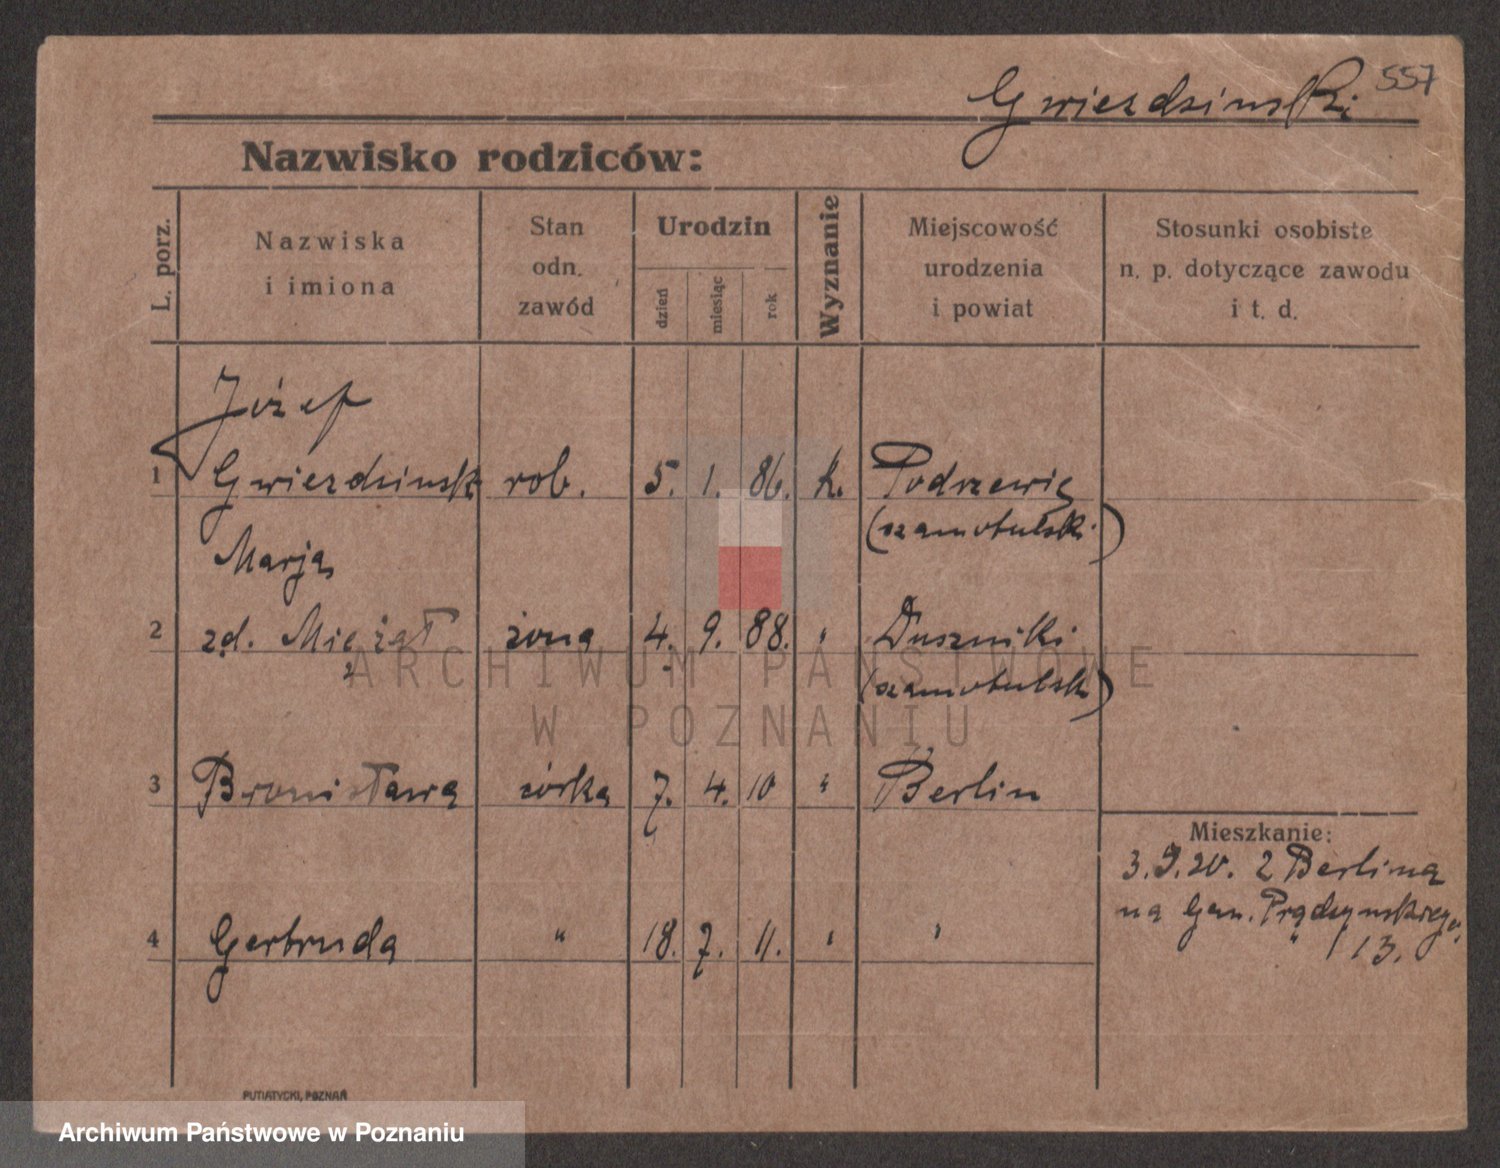 Gwiezdzinski 557
Nazwisko rodziców:
L. porz.
Nazwiska
i imiona
Stan
odn.
zawód
Urodzin
dzień
miesiąc
rok
Wyznanie
Miejscowość
urodzenia
i powiat
Stosunki osobiste
n. p. dotyczące zawodu
i t. d.
Józef
1 Gwiezdzinsk rob. 5. 1. 86. k. Podrzewie
(szamotulski)
Marja
2 zd. Mężąt żona 4. 9. 88. " Duszniki
(szamotulsk)
3 Bronisława córka 7. 4. 10 " Berlin
Mieszkanie:
3.9.20. z Berlina
na Gen. Prądzyńskiego
13.
4 Gertruda " 18. 7. 11. " "
ARCHIWUM PAŃSTWOWE
W POZNANIU
PUTIATYCKI, POZNAŃ
Archiwum Państwowe w Poznaniu